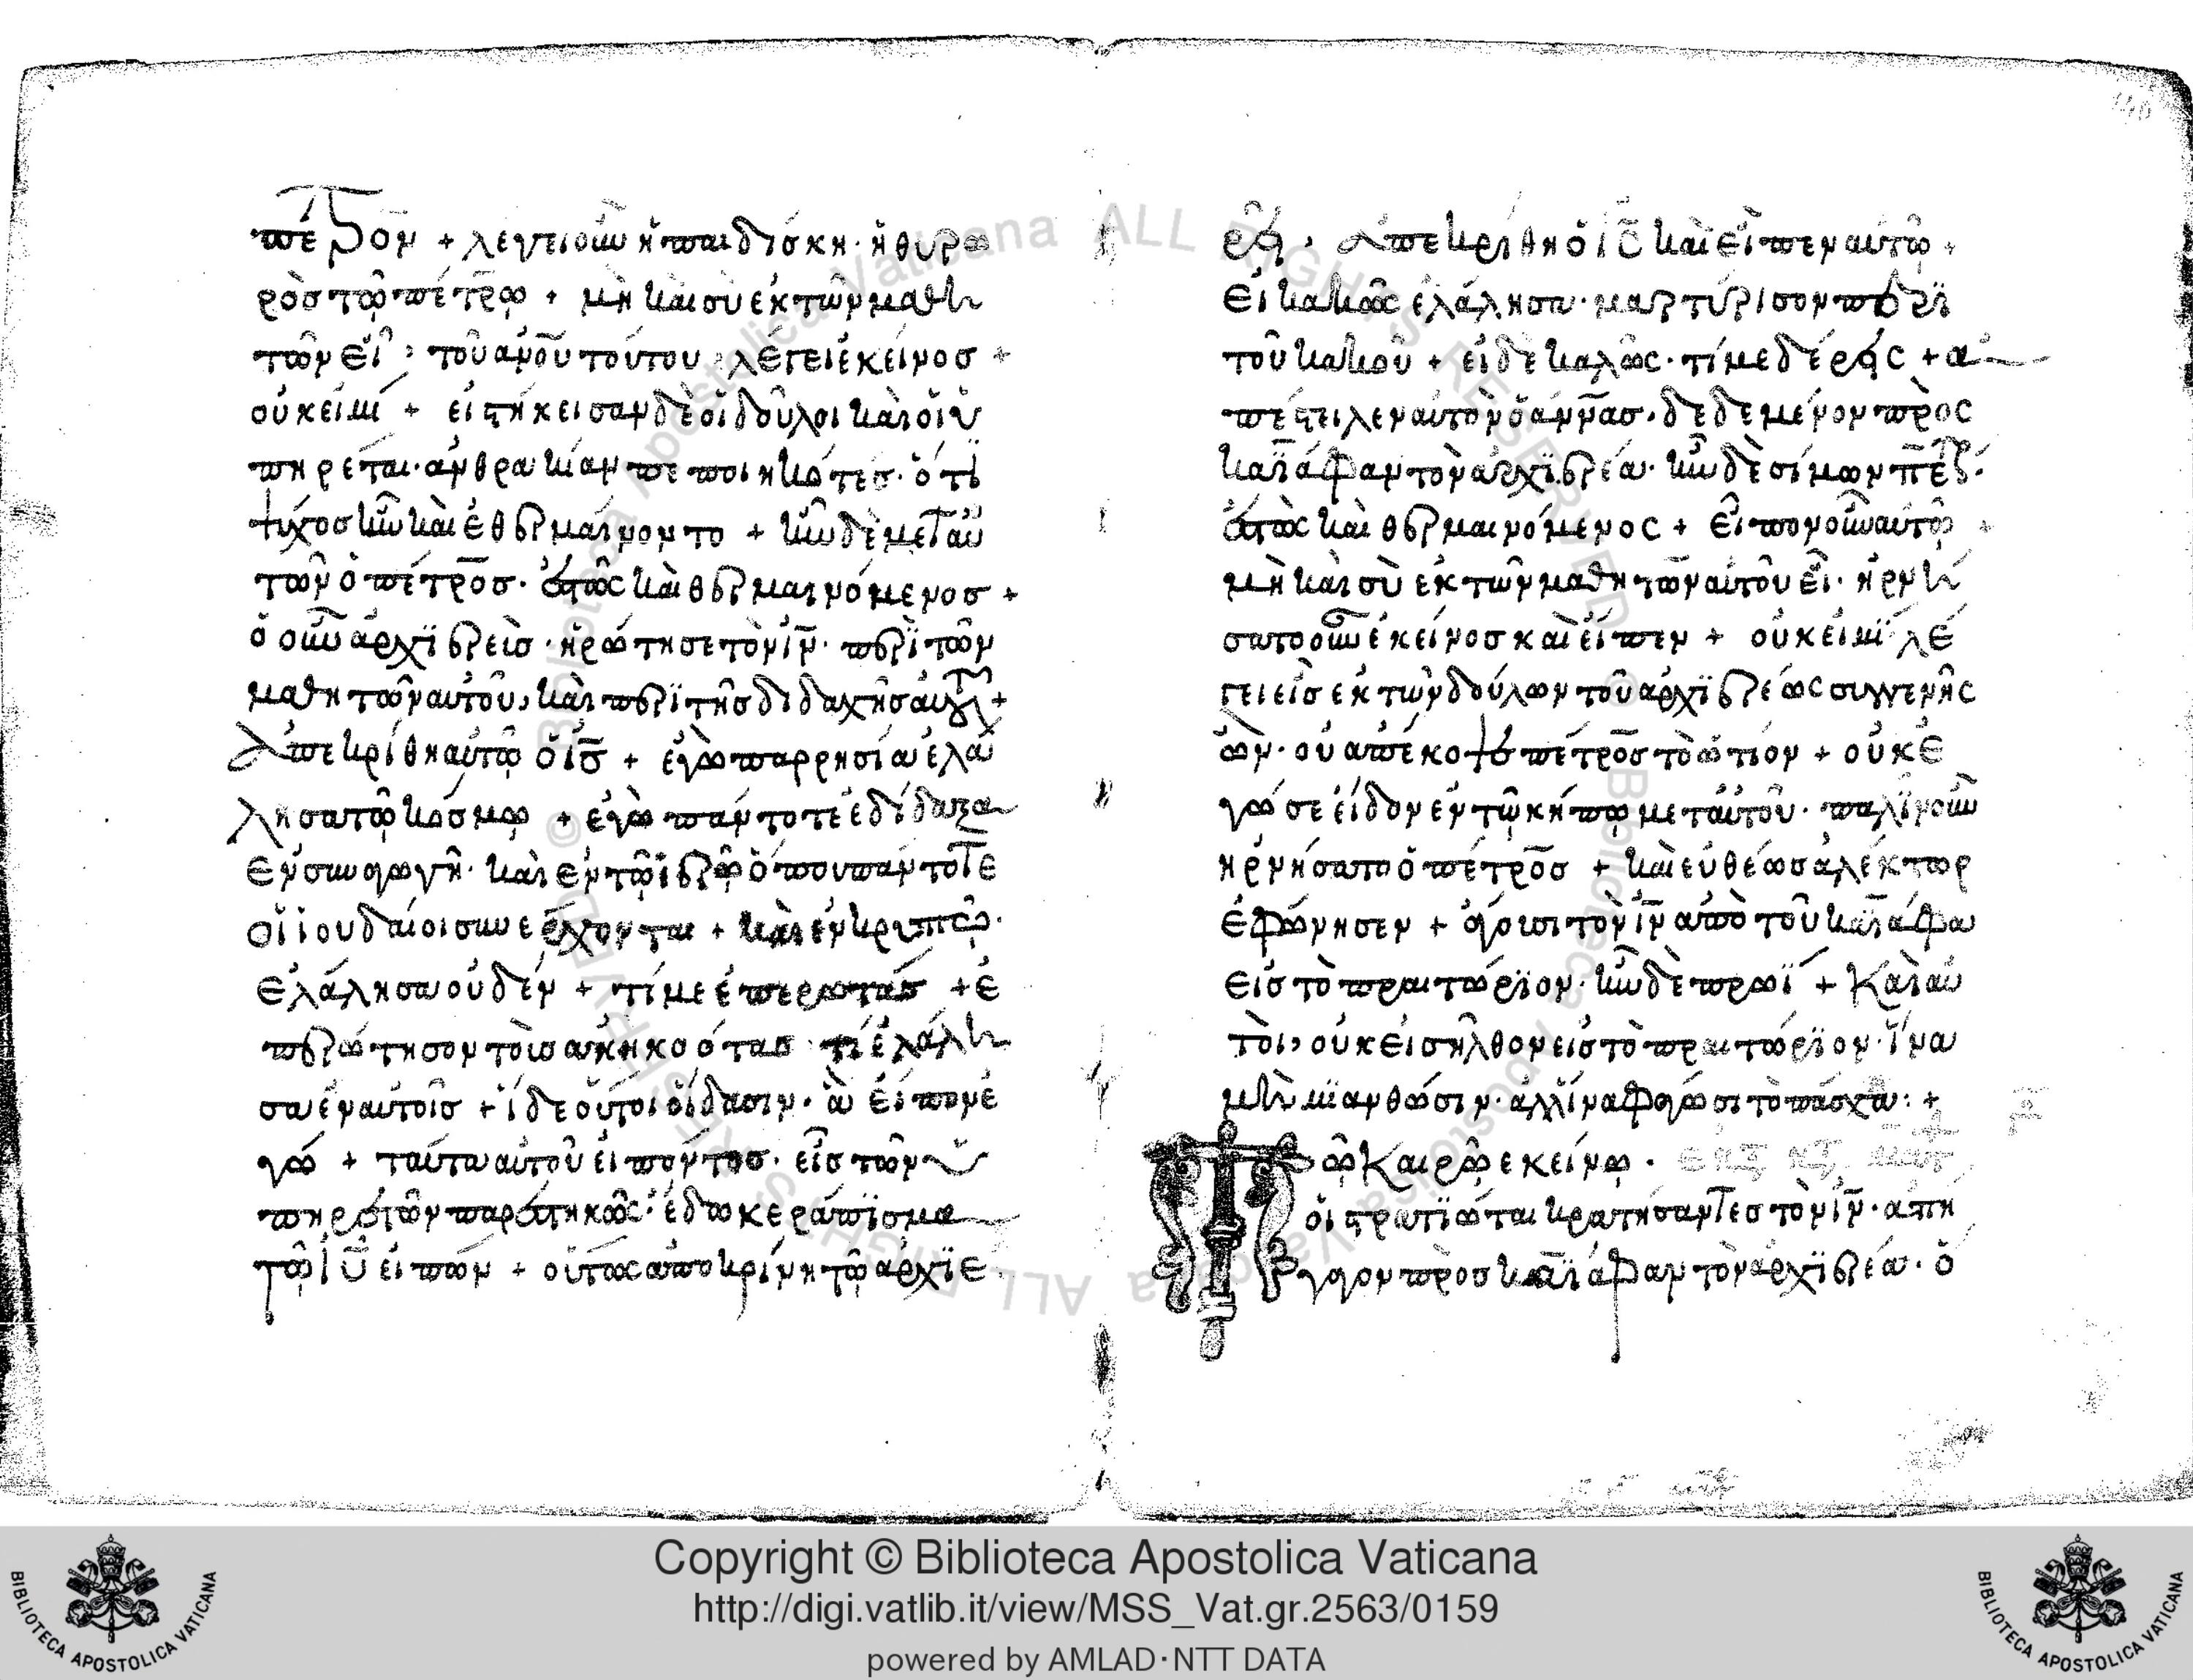 πέτρον + λέγει οὖν ἡ παιδίσκη· ἡ θυρω
ρὸσ τῶ πέτρω + μὴ καὶ σὺ ἐκ τῶν μαθη
τῶν εἶ; τοῦ ἀνοῦ τούτου; λέγει ἐκεῖνοσ +
οὐκ εἰμί + εἱστήκεισαν δὲ οἱ δοῦλοι καὶ οἱ ὑ
πηρέται· ἀνθρακίαν πεποιηκότεσ· ὅτι
ψύχοσ ἦν καὶ ἐθερμαίνοντο + ἦν δὲ μετ αὐ
τῶν ὁ πέτροσ· ἑστὼς καὶ θερμαινόμενοσ +
ὁ οὖν ἀρχϊερεὺσ· ἠρώτησε τὸν ιν· περὶ τῶν
μαθητῶν αὐτοῦ, καὶ περὶ τῆσ διδαχῆσ αὐτοῦ +
ἀπεκρίθη αὐτῶ ὁ ισ + ἐγὼ παρρησία ἐλά
λησα τῶ κόσμω + ἐγὼ πάντοτε ἐδίδαξα
ἐν συναγωγῆ· καὶ ἐν τῶ ἱερῶ ὅπου πάντοτε
οἱ ἰουδαίοι συνέρχονται + καὶ ἐν κρυπτῶ·
ἐλάλησα οὐδέν + τί με ἐπερωτάσ + ἐ
περώτησον τοὺσ ἀκηκοότασ τί ἐλάλη
σα ἐν αὐτοῖσ + ἴδε οὗτοι οἴδασιν· ἃ εἶπον ἐ
γώ + ταῦτα αὐτοῦ εἰπόντοσ· εἷσ τῶν ὑ
πηρετῶν παρεστηκὼς· ἔδωκε ράπϊσμα
τῶ ιυ εἰπών + οὕτως ἀποκρίνη τῶ ἀρχϊε
ρεῖ· ἀπεκρίθη ὁ ις καὶ εἶπεν αὐτῶ +
εἰ κακῶς ἐλάλησα· μαρτύρισον περὶ
τοῦ κακοῦ + εἰ δὲ καλῶς· τί με δέρεις + ἀ
πέστειλεν αὐτὸν ὁ ἄννασ· δεδεμένον πρὸς
καϊάφαν τὸν ἀρχϊερέα· ἦν δὲ σίμων πέτρ·
ἑστὼς καὶ θερμαινόμενος + εἶπον οὖν αὐτῶ +
μὴ καὶ σὺ ἐκ τῶν μαθητῶν αὐτοῦ εἶ· ἠρνή
σατο οὖν ἐκείνοσ καὶ εἶπεν + οὐκ εἰμϊ· λέ
γει εἷσ ἐκ τῶν δούλων τοῦ ἀρχϊερέως συγγενὴς
ὢν· οὗ ἀπέκοψε πέτροσ τὸ ὠτίον + οὐκ ἐ
γώ σε εἶδον ἐν τῶ κήπω μετ αὐτοῦ· παλϊν οὖν
ἠρνήσατο ὁ πέτροσ + καὶ εὐθέωσ ἀλέκτωρ
ἐφώνησεν + ἄγουσι τὸν ιν ἀπὸ τοῦ καϊάφα
εἰσ τὸ πραιτώρϊον· ἦν δὲ πρωϊ + Καὶ αὐ
τοὶ, οὐκ εἰσῆλθον εἰσ τὸ πραιτώρϊον· ἵνα
μὴ μϊανθώσιν· ἀλλ ἵνα φάγωσι τὸ πάσχα: +
Τῶ Καιρῶ εκείνω·
οἱ στρατϊώται κρατήσαντεσ τὸν ιν· ἀπή
γαγον πρὸσ καϊάφαν τὸν ἀρχϊερέα· ὁ
Copyright © Biblioteca Apostolica Vaticana
http://digi.vatlib.it/view/MSS_Vat.gr.2563/0159
powered by AMLAD·NTT DATA
BIBLIOTECA APOSTOLICA VATICANA
BIBLIOTECA APOSTOLICA VATICANA